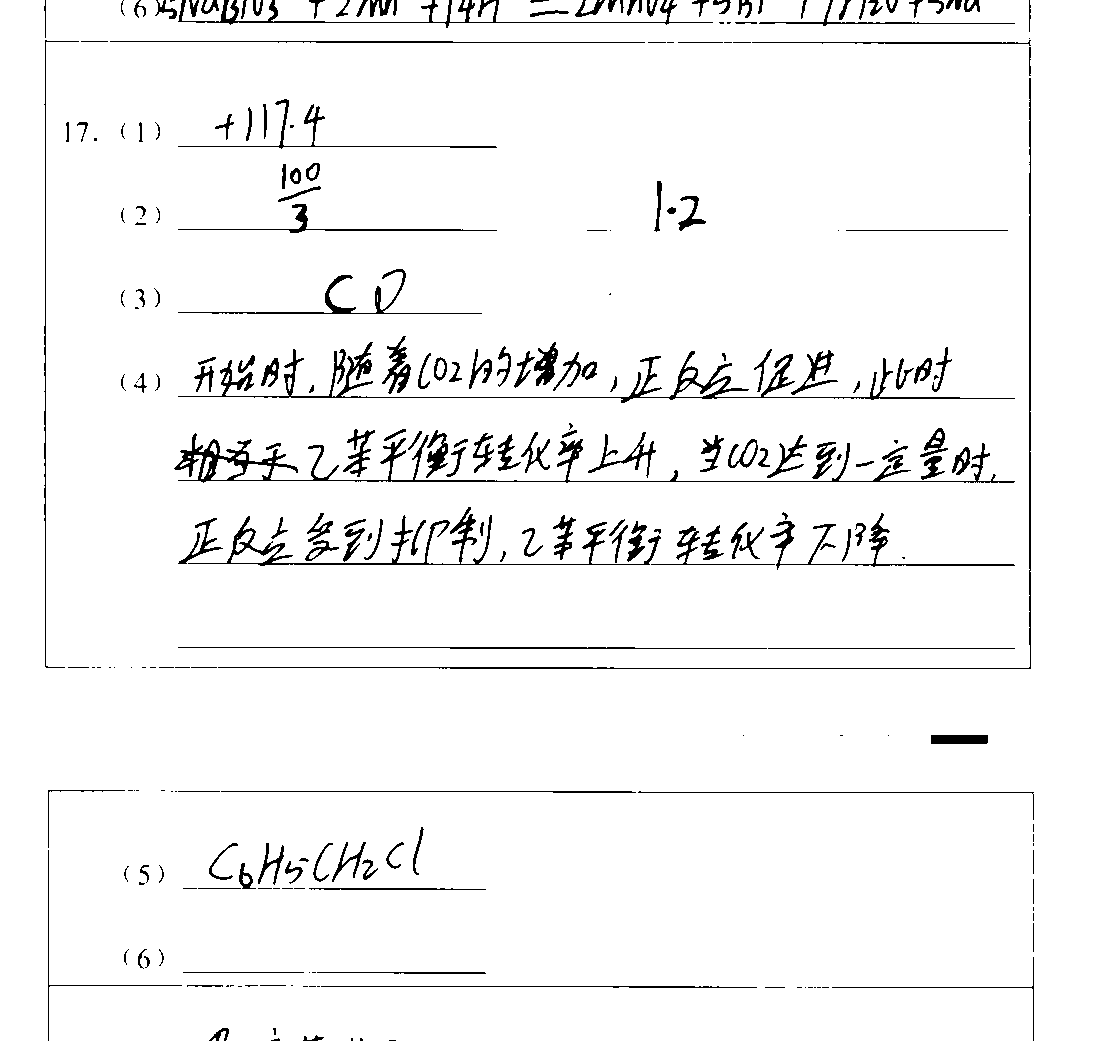 (6) 5NaBiO3 + 2Mn + 14H = 2MnO4 + 5Bi + 7H2O + 5Na
17. (1) +117.4
(2) 100/3 1.2
(3) CD
(4) 开始时,随着CO2的增加,正反应促进,此时
乙苯平衡转化率上升,当CO2达到一定量时,
正反应受到抑制,乙苯平衡转化率下降.
(5) C6H5CH2Cl
(6)